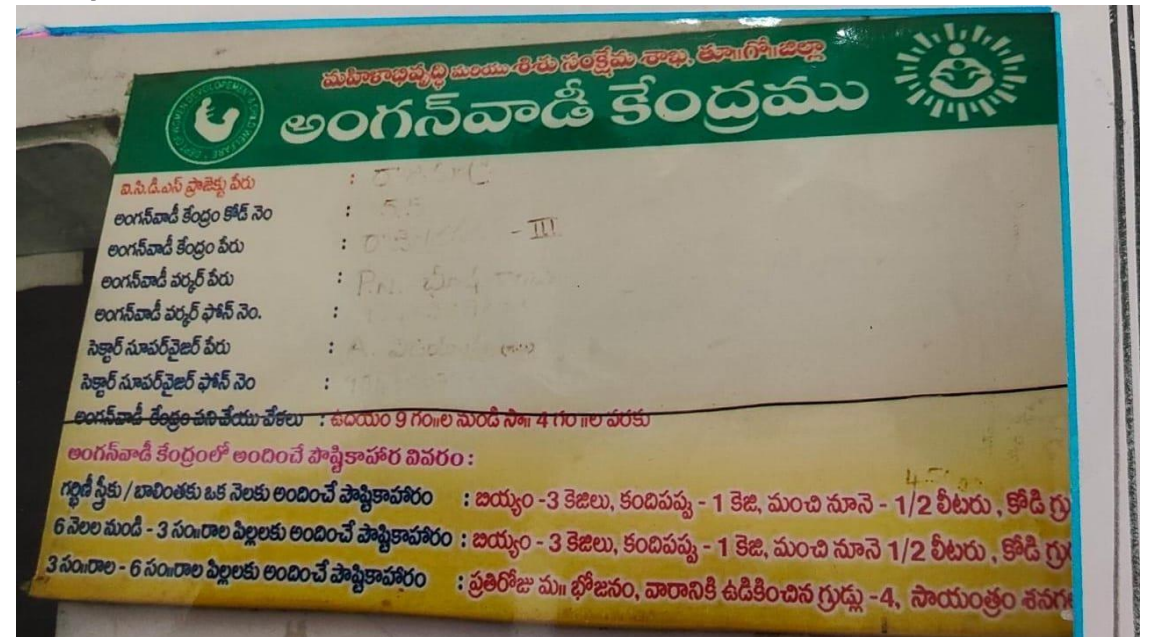 మహిళాభివృద్ధి మరియు శిశు సంక్షేమ శాఖ, తూ॥గో॥జిల్లా
అంగన్‌వాడీ కేంద్రము
ఐ.సి.డి.ఎస్ ప్రాజెక్టు పేరు :
అంగన్‌వాడీ కేంద్రం కోడ్ నెం :
అంగన్‌వాడీ కేంద్రం పేరు : - III
అంగన్‌వాడీ వర్కర్ పేరు : P.N.
అంగన్‌వాడీ వర్కర్ ఫోన్ నెం. :
సెక్టార్ సూపర్‌వైజర్ పేరు : A.
సెక్టార్ సూపర్‌వైజర్ ఫోన్ నెం :
అంగన్‌వాడీ కేంద్రం పని చేయు వేళలు : ఉదయం 9 గం॥ల నుండి సా॥ 4 గం॥ల వరకు
అంగన్‌వాడీ కేంద్రంలో అందించే పౌష్టికాహార వివరం :
గర్భిణీ స్త్రీకు / బాలింతకు ఒక నెలకు అందించే పౌష్టికాహారం : బియ్యం -3 కెజిలు, కందిపప్పు - 1 కెజి, మంచి నూనె - 1/2 లీటరు , కోడి గ్రు
6 నెలల నుండి - 3 సం॥రాల పిల్లలకు అందించే పౌష్టికాహారం : బియ్యం - 3 కెజిలు, కందిపప్పు - 1 కెజి, మంచి నూనె 1/2 లీటరు , కోడి గ్రు
3 సం॥రాల - 6 సం॥రాల పిల్లలకు అందించే పౌష్టికాహారం : ప్రతిరోజు మ॥ భోజనం, వారానికి ఉడికించిన గ్రుడ్లు -4, సాయంత్రం శనగ